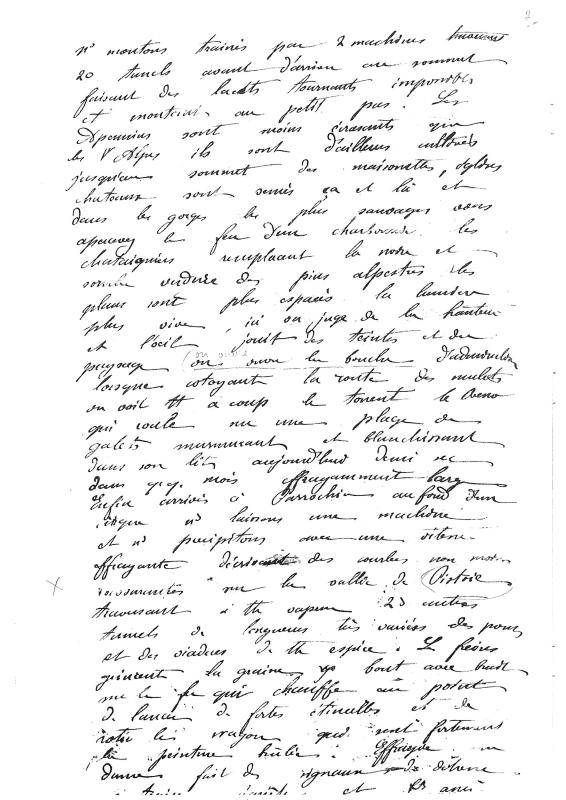 ns montons trainés par 2 machines traversant
20 tunels avant d'arriver au sommet
faisant des lacets tournants impossibles
et montons au petit pas. Les
Apennins sont moins écrasants que
les Alpes ils sont d'ailleurs cultivés
jusqu'au sommet des maisonettes, églises
chateaux sont semés ça et là et
dans les gorges les plus sauvages vous
apercevez le feu d'un charbonnier les
chataigniers remplacant la noire et
sombre verdure des pins alpestres les
plans sont plus espacés la lumière
plus vive, ici on juge de la hauteur
et l'oeil jouit des teintes et du
paysage on ouvre la bouche d'admiration
lorsque cotoyant la route des mulets
on voit tt a coup le torrent le Reno
qui roule sur une plage de
galets murmurant et blanchissant
dans son lit aujourd'hui demi sec
dans qq. mois effrayamment large
Enfin arrivés à Parrochia au fond d'un
cirque ns laissons une machine
et ns precipitons avec une vitesse
effrayante décrivant des courbes non moins
sur la vallée de Pistoie
traversant à tte vapeur 23 autres
tunnels de longueurs très variées des ponts
et des viaducs de tte espèce. Les freins
grincent la graine bout avec bruit
sur le fer qui chauffe au point
de lancer de fortes étincelles et de
rotir les wagons qui sent fortement
la peinture brûlée. Effrayée
dame fait des signaux de détresse
et